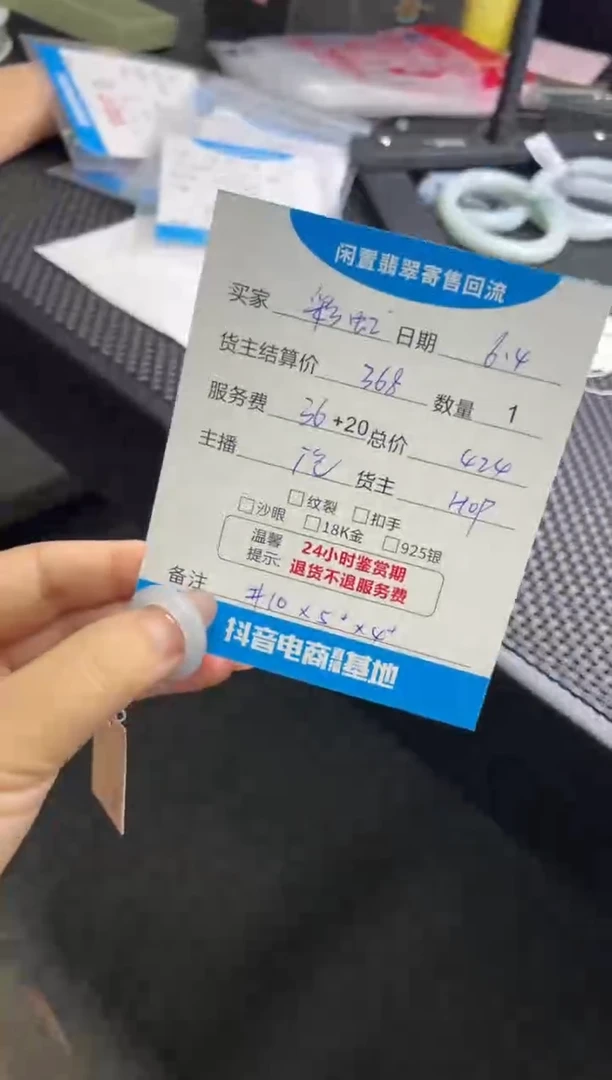 闲置翡翠寄售回流
买家 彩虹 日期 6.4
货主结算价 368 数量 1
服务费 36 +20 总价 424
主播 货主 HOP
□沙眼 □纹裂 □扣手
□18K金 □925银
温馨提示: 24小时鉴赏期
退货不退服务费
备注 #10×5⁺×4⁺
抖音电商 基地